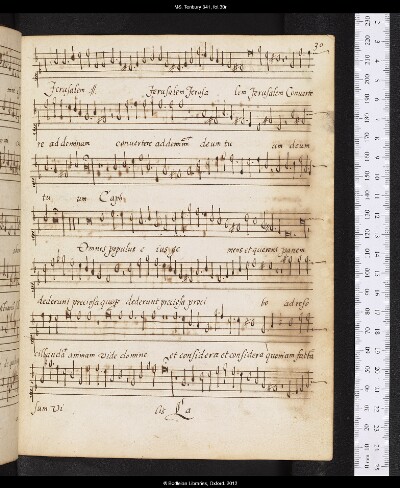 MS. Tenbury 341, fol. 30r
30
Jerusalem ij. Jerusalem Jerusa lem Jerusalem Conuerte
re ad dominum conuertere ad dominum deum tu um deum
tu um Caph
Omnes populus e ius ge mens et querens panem
dederunt preciosa dederunt preciosa pro ci bo ad refo
cillandā animam vide domine et considera et considera quoniam facta
sum vi lis La
© Bodleian Libraries, Oxford, 2012